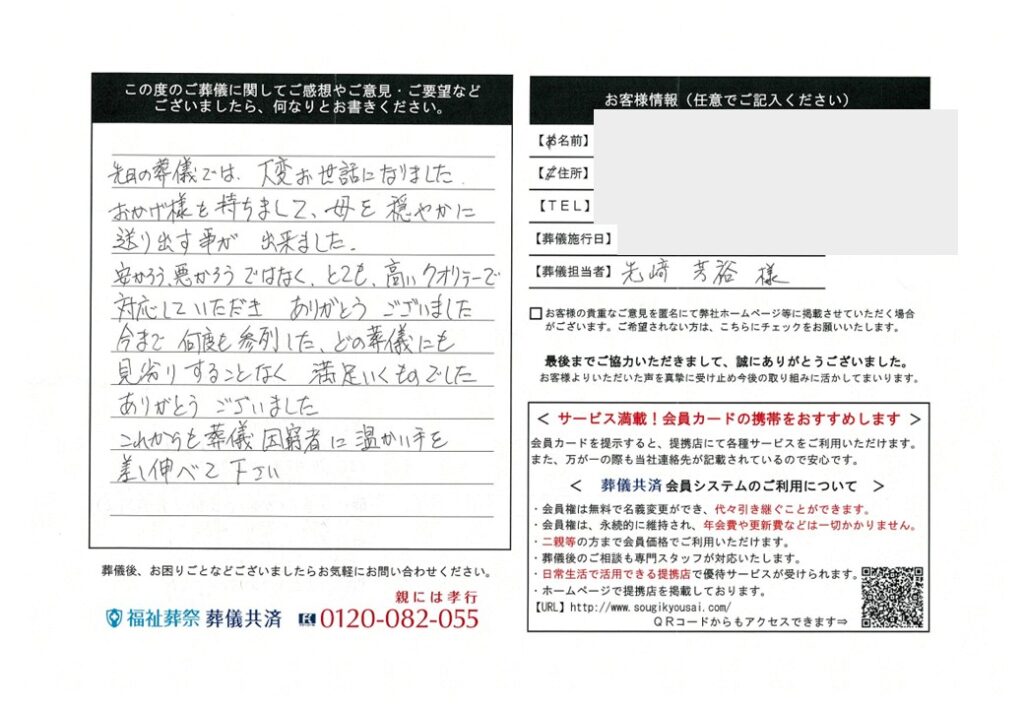 この度のご葬儀に関してご感想やご意見・ご要望など
ございましたら、何なりとお書きください。
先日の葬儀では、大変お世話になりました.
おかげ様を持ちまして、母を穏やかに
送り出す事が 出来ました.
安かろう、悪かろうではなく、とても、高いクオリテーで
対応していただき ありがとう ございました
今まで 何度も参列した、どの葬儀にも
見劣りすることなく 満足いくものでした
ありがとう ございました
これからも葬儀困窮者に温かい手を
差し伸べて下さい
葬儀後、お困りごとなどございましたらお気軽にお問い合わせください。
親には孝行
福祉葬祭 葬儀共済 0120-082-055
お客様情報（任意でご記入ください）
【お名前】
【ご住所】
【ＴＥＬ】
【葬儀施行日】
【葬儀担当者】先﨑 芳裕 様
お客様の貴重なご意見を匿名にて弊社ホームページ等に掲載させていただく場合
がございます。ご希望されない方は、こちらにチェックをお願いいたします。
最後までご協力いただきまして、誠にありがとうございました。
お客様よりいただいた声を真摯に受け止め今後の取り組みに活かしてまいります。
＜ サービス満載！会員カードの携帯をおすすめします ＞
会員カードを提示すると、提携店にて各種サービスをご利用いただけます。
また、万が一の際も当社連絡先が記載されているので安心です。
＜ 葬儀共済 会員システムのご利用について ＞
・会員権は無料で名義変更ができ、代々引き継ぐことができます。
・会員権は、永続的に維持され、年会費や更新費などは一切かかりません。
・二親等の方まで会員価格でご利用いただけます。
・葬儀後のご相談も専門スタッフが対応いたします。
・日常生活で活用できる提携店で優待サービスが受けられます。
・ホームページで提携店を掲載しております。
【URL】http://www.sougikyousai.com/
ＱＲコードからもアクセスできます⇒